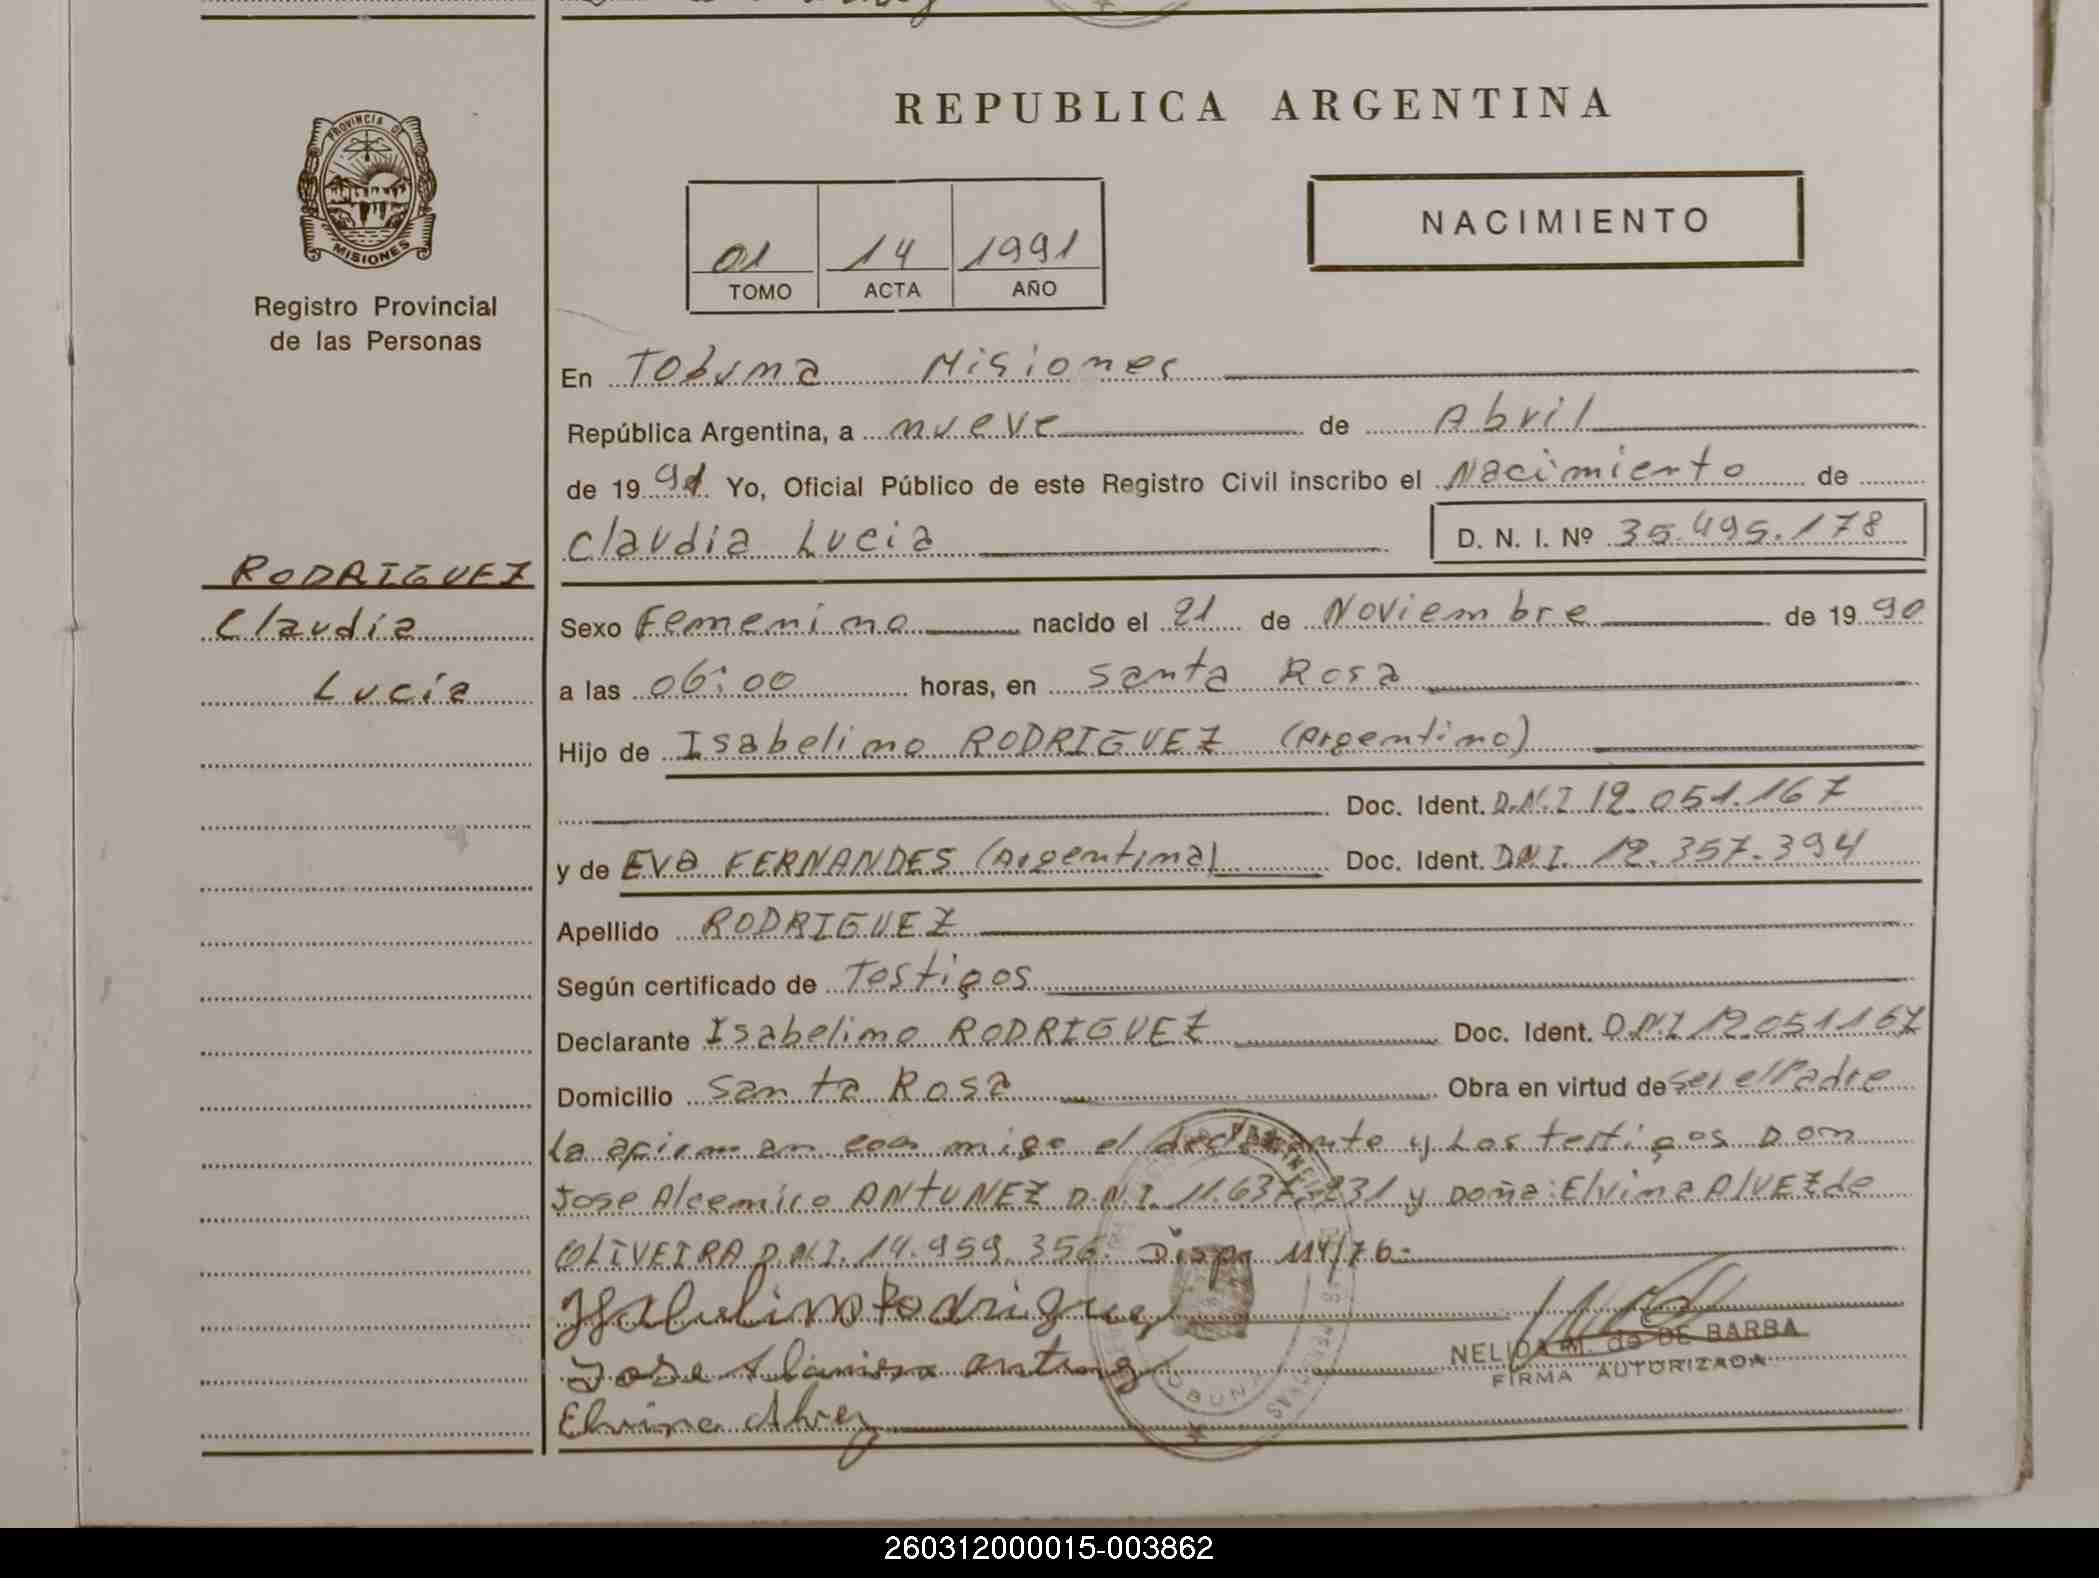 REPUBLICA ARGENTINA
PROVINCIA DE
MISIONES
Registro Provincial
de las Personas
01 14 1991
TOMO ACTA AÑO
NACIMIENTO
En Tobuna Misiones
República Argentina, a nueve de Abril
de 1991 Yo, Oficial Público de este Registro Civil inscribo el Nacimiento de
Claudia Lucia D. N. I. Nº 35.495.178
RODRIGUEZ
Claudia
Lucía
Sexo Femenino nacido el 21 de Noviembre de 1990
a las 06:00 horas, en Santa Rosa
Hijo de Isabelino RODRIGUEZ (Argentino)
Doc. Ident. D.N.I 12.051.167
y de Eva FERNANDES (Argentina) Doc. Ident. D.N.I. 12.357.394
Apellido RODRIGUEZ
Según certificado de Testigos
Declarante Isabelino RODRIGUEZ Doc. Ident. D.N.I 12.051167
Domicilio Santa Rosa Obra en virtud de ser el Padre
la firman con migo el declarante y Los testigos Don
Jose ANTUNEZ D.N.I. y Doña: Elvina ALVEZ de
OLIVEIRA D.N.I. 14.959.356. Disp. 114/76.-
Isabelino Rodriguez
Jose
Elvina Alvez
NELIDA M. de DE BARBA
FIRMA AUTORIZADA
260312000015-003862